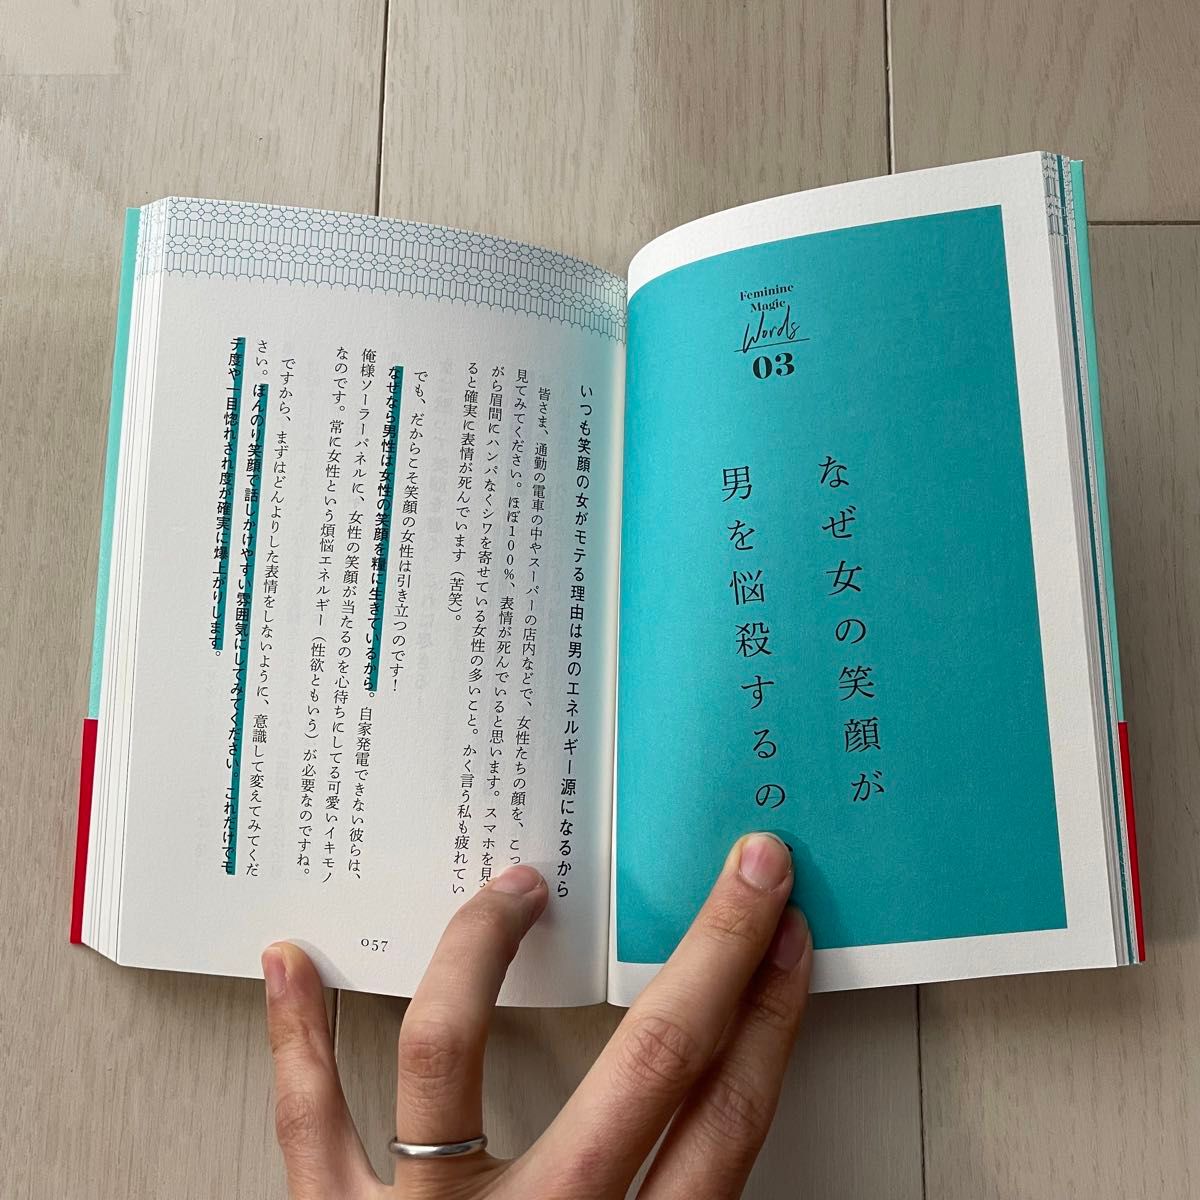 Feminine
Magic
Words
03
なぜ女の笑顔が
男を悩殺するの
いつも笑顔の女がモテる理由は男のエネルギー源になるから
皆さま、通勤の電車の中やスーパーの店内などで、女性たちの顔を、こっ
見てみてください。ほぼ100%、表情が死んでいると思います。スマホを見
がら眉間にハンパなくシワを寄せている女性の多いこと。かく言う私も疲れてい
ると確実に表情が死んでいます（苦笑）。
でも、だからこそ笑顔の女性は引き立つのです！
なぜなら男性は女性の笑顔を糧に生きているから。自家発電できない彼らは、
俺様ソーラーパネルに、女性の笑顔が当たるのを心待ちにしてる可愛いイキモノ
なのです。常に女性という煩悩エネルギー（性欲ともいう）が必要なのですね。
ですから、まずはどんよりした表情をしないように、意識して変えてみてくだ
さい。ほんのり笑顔で話しかけやすい雰囲気にしてみてください。これだけでモ
テ度や一目惚れされ度が確実に爆上がりします。
057